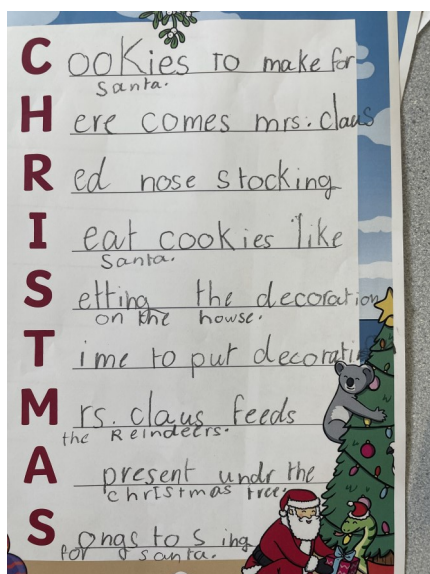 Cookies to make for
Santa.
Here comes mrs. claus
Red nose stocking
I eat cookies like
Santa.
Setting the decoration
on the howse.
Time to put decorati
Mrs. claus feeds
the Reindeers.
A present undr the
christmas tree.
Songs to sing
for santa.